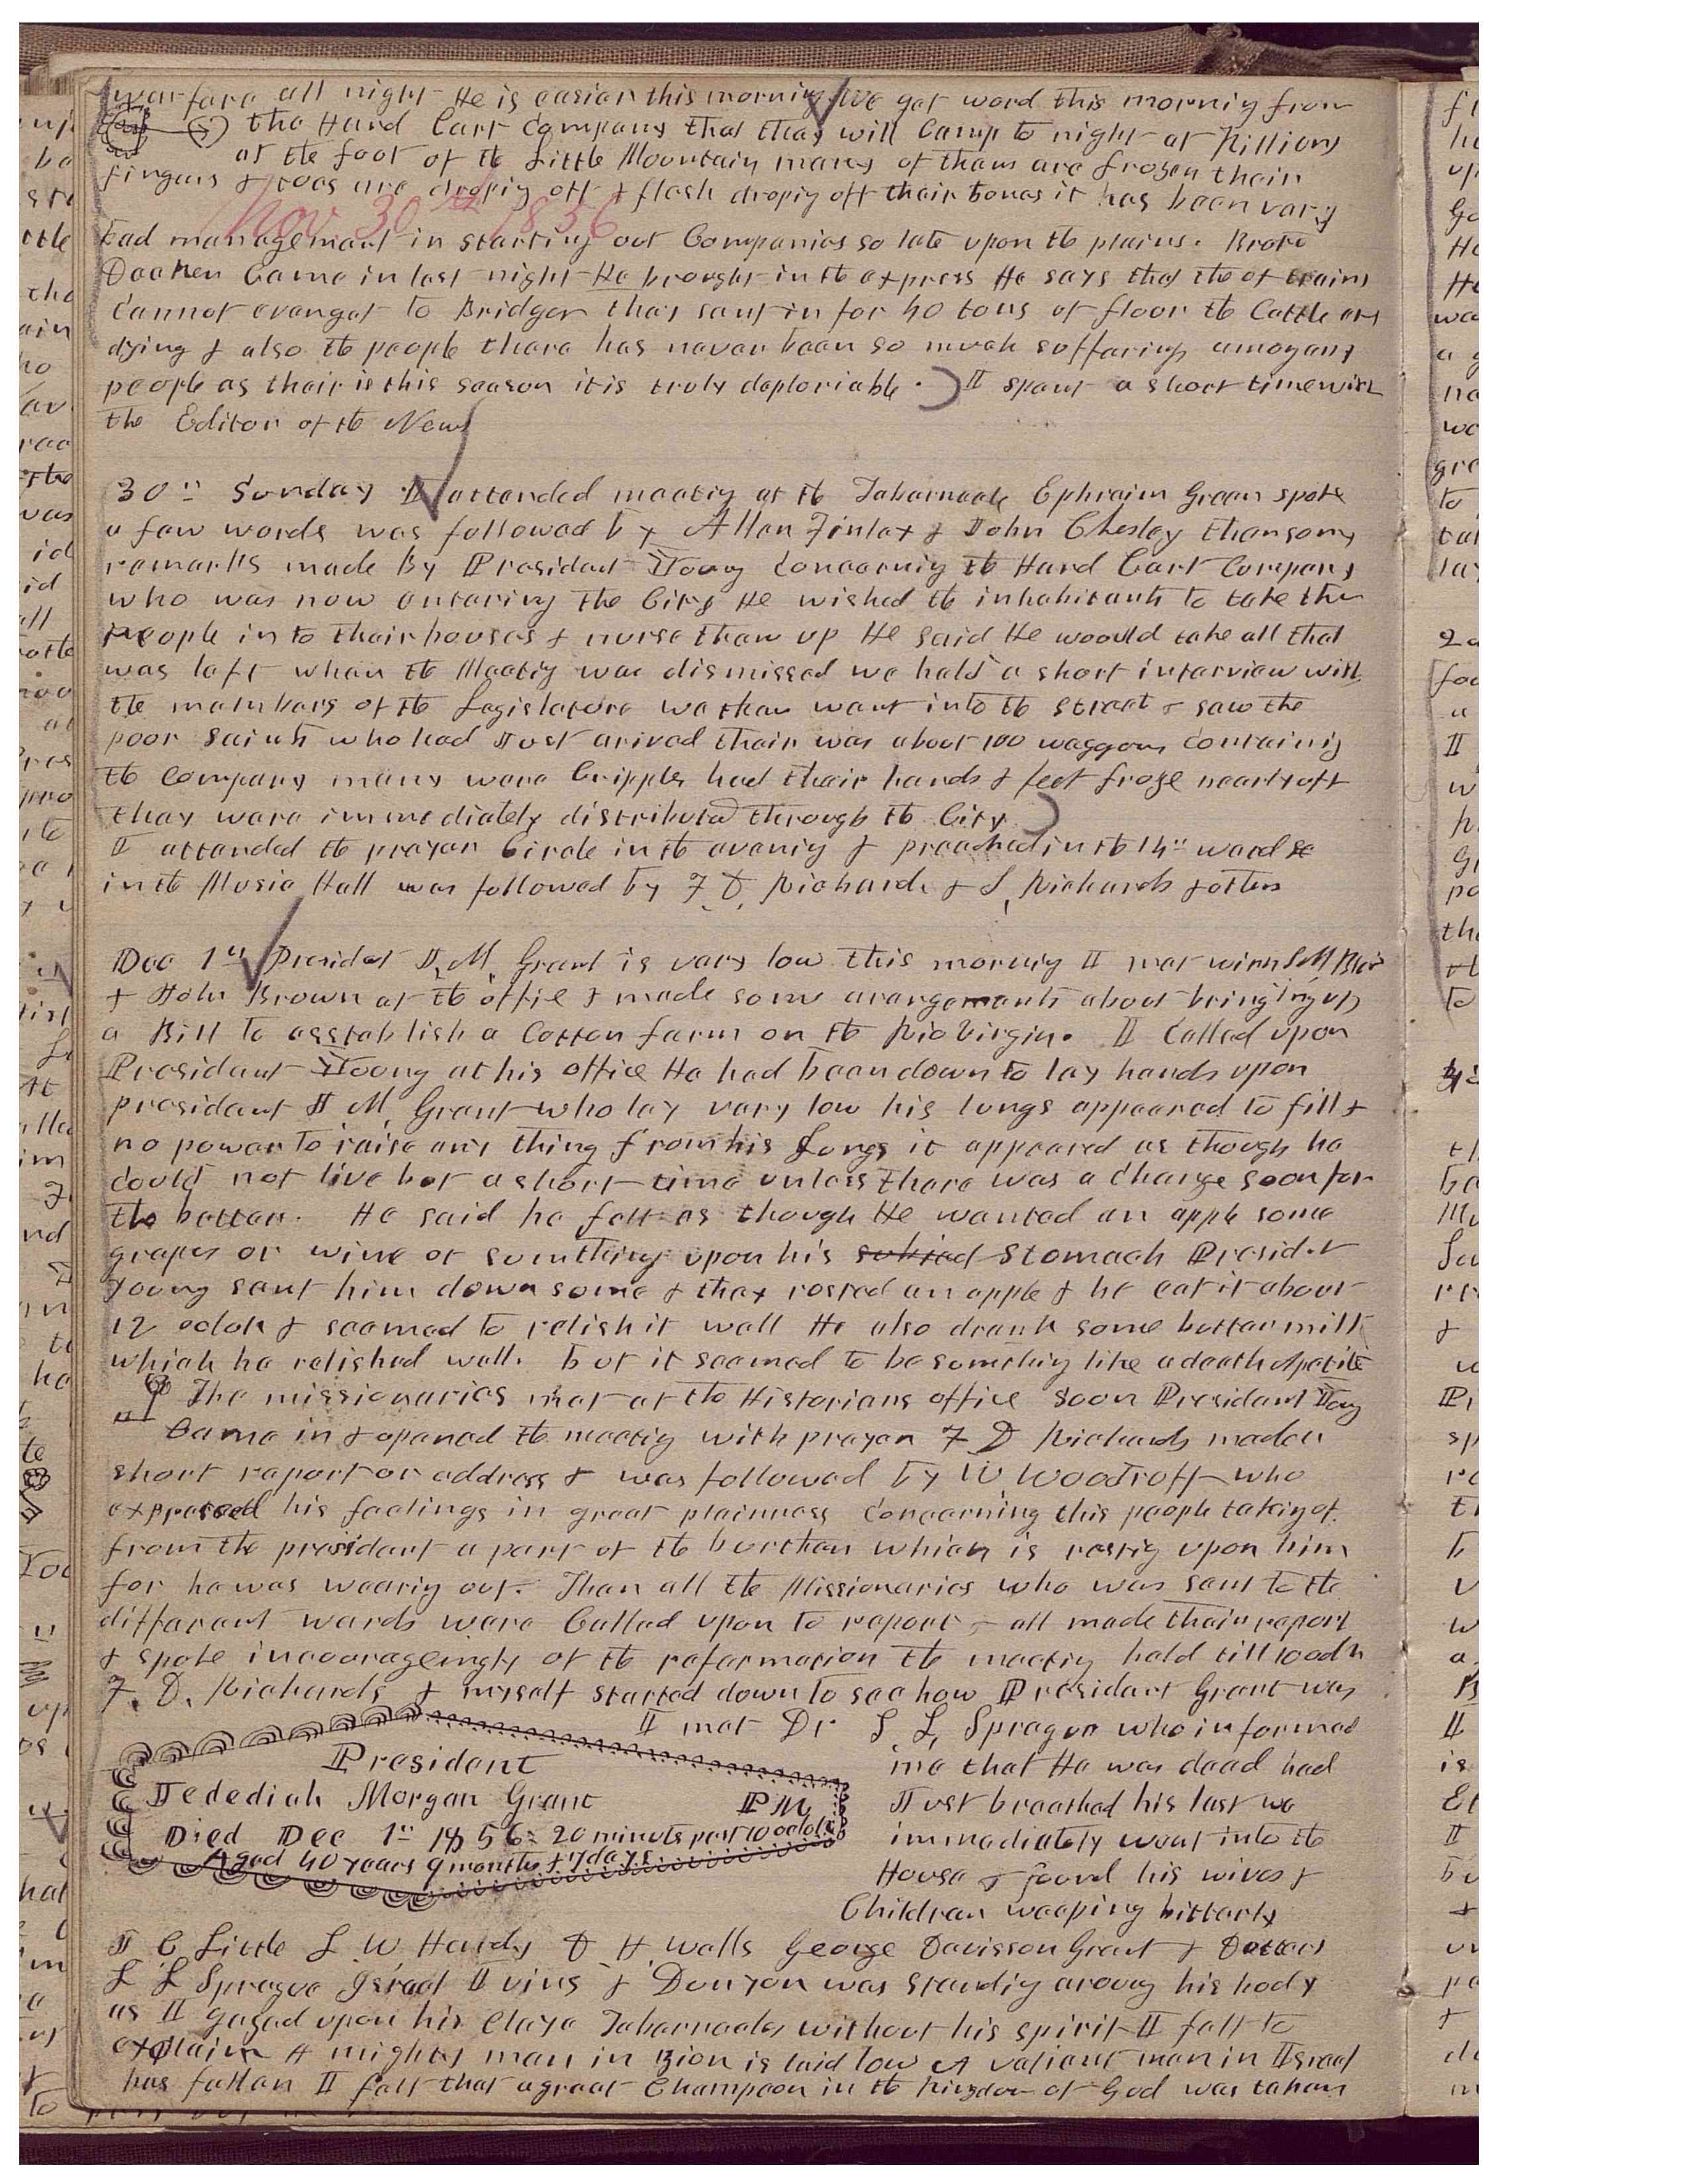 warfare all night He is easier this morning We got word this mornig from
the Hand Cart Company that they will Camp to night at Killions
at the foot of the Little Mountain many of them are frozen their
fingers & toes are dropig off & flesh dropig off their bones it has been very
Nov 30th 1856
bad management in starting out Companies so late upon the plains. Broth
Decker Came in last night He brought in the express He says that the ox trains
Cannot even get to Bridger they sent in for 40 tons of flour the Cattle are
dying & also the people there has never been so much suffering among any
people as their is this season it is truly deploriable. I spent a short time with
the Editor of the News
30" Sunday I attended meetig at the Tabernacle Ephraim Green spoke
a few words was followed by Allen Finlay & John Chesley then some
remarks made By President Young Concernig the Hand Cart Company
who was now entering the City He wished the inhabitants to take the
people in to their houses & nurse them up He said He would take all that
was left when the Meetig was dismissed we held a short interview with
the members of the Legislature we then went into the street & saw the
poor Saints who had Just arived their was about 100 waggons Containig
the Company many were Cripples had their hands & feet froze nearly off
they were immediately distributed through the City
I attended the prayer Circle in the evenig & preached in the 14" ward
in the Music Hall was followed by F. D. Richards & S, Richards & others
Dec 1st Presidet J, M, Grant is very low this mornig I met with S M Blair
& John Brown at the offic & made some arangements about bringing up
a Bill to esstablish a Cotton farm on the Rio Virgin. I Called upon
President Young at his office He had been down to lay hands upon
president J M, Grant who lay very low his lungs appeared to fill &
no power to raise any thing from his Lungs it appeared as though he
could not live but a short time unless there was a change soon for
the better. He said he felt as though He wanted an apple some
grapes or wine or something upon his Stomach Presidet
Young sent him down some & they rosted an apple & he eat it about
12 oclok & seemed to relish it well He also drank some butter milk
which he relished well. but it seemed to be somethig like a death Apetite
The missionaries met at the Historians office Soon President Young
Came in & opened the meetig with prayer F D Richards made a
short report or address & was followed by W Woodruff who
expressed his feelings in great plainness Concerning this people taking of
from the president a part of the burthen which is restig upon him
for he was wearig out. Then all the Missionaries who was sent to the
different wards were Called upon to report & all made their report
& spoke incourageingly of the reformation the meetig held till 10 oclk
F. D. Richards & myself started down to see how President Grant was
I met Dr S, L, Sprague who informed
me that He was dead had
Just breathed his last we
immediately went into the
House & found his wives &
Children weeping bitterly
President
Jedediah Morgan Grant
PM
Died Dec 1st 1856 20 minuts past 10 oclok
Aged 40 years 9 months & 7 days
J C Little L W Hardy D H Wells George Davisson Grant & Docters
S L Sprague Israel Ivins & Dunyon was standig aroung his body
as I gazed upon his Claye Tabernacle without his spirit I felt to
exclaim A mighty man in Zion is laid low A valiant man in Israel
has fallen I felt that a great Champion in the Kingdom of God was taken